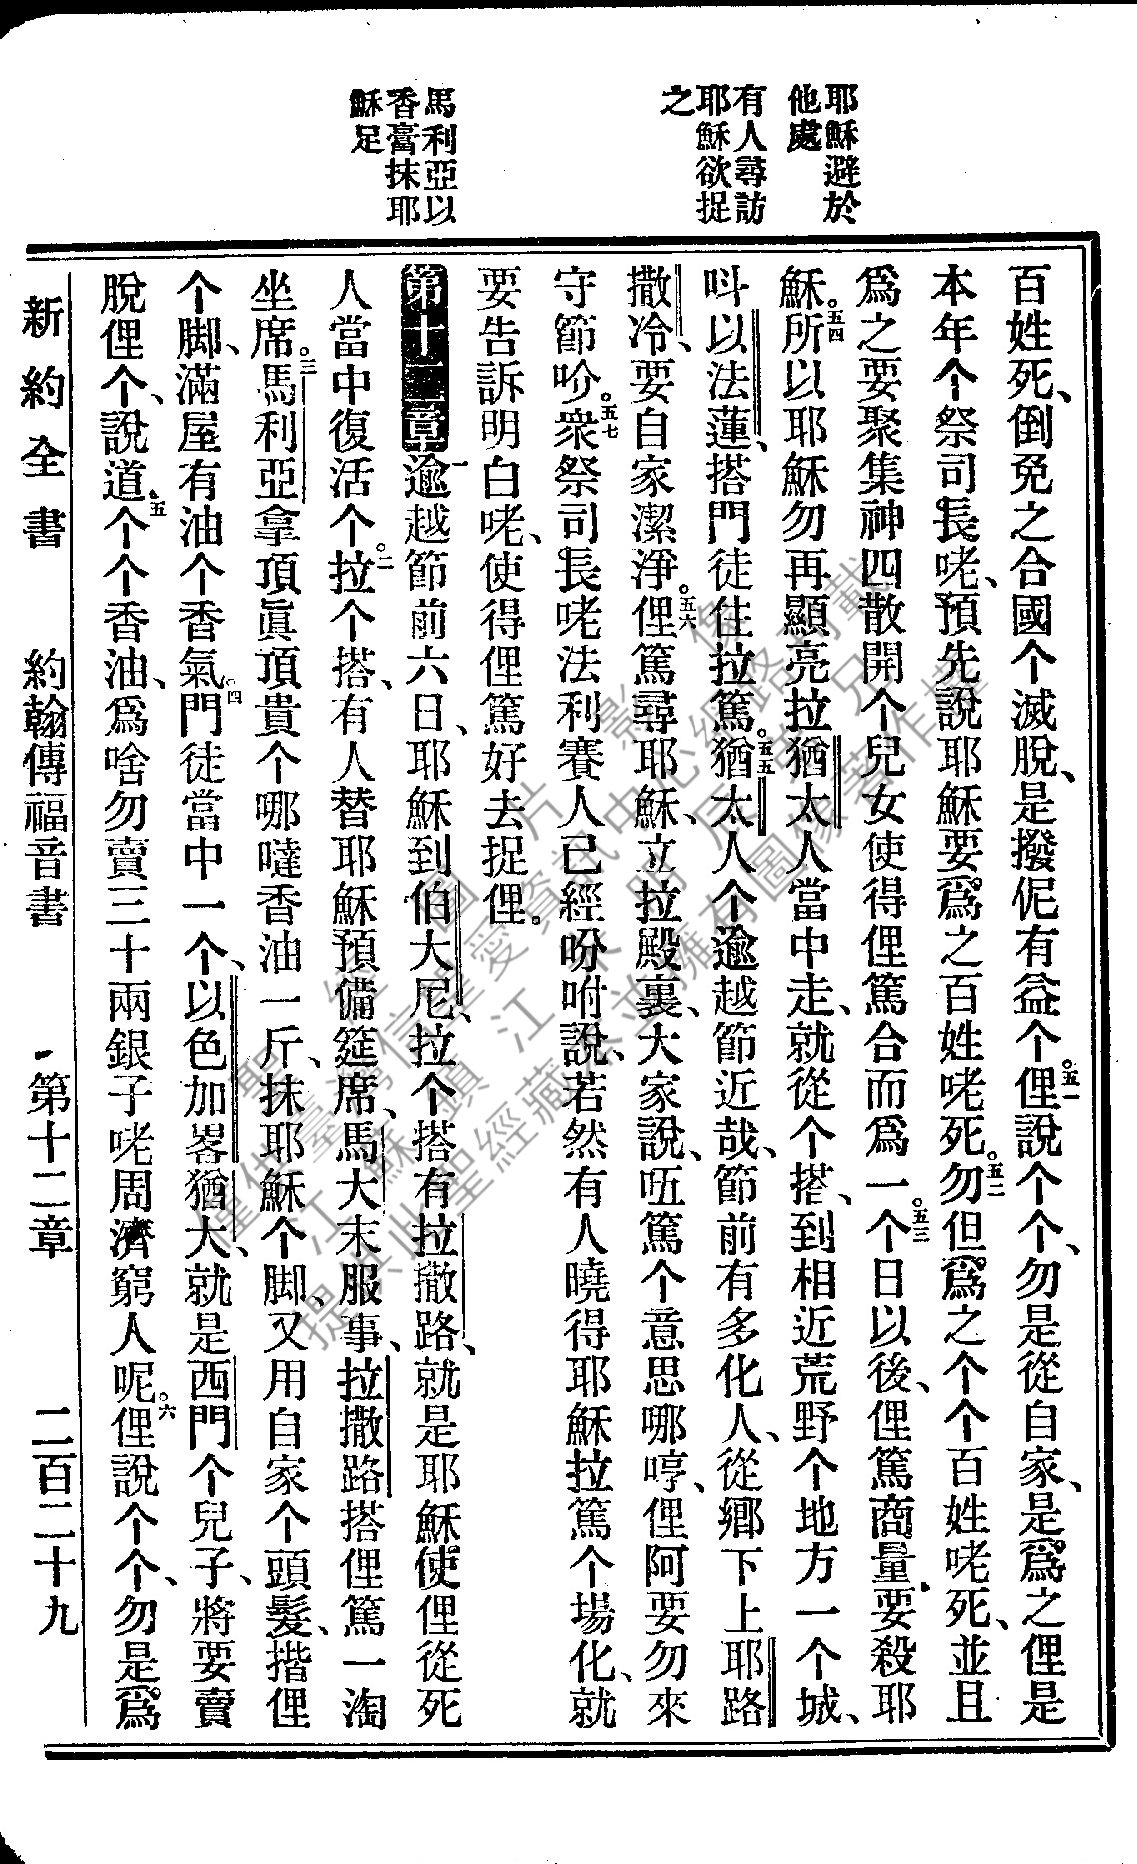 耶穌避於
他處
有人尋訪
耶穌欲捉
之
馬利亞以
香膏抹耶
穌足
百姓死、倒免之合國个滅脫、是撥伲有益个。五一俚說个个、勿是從自家、是爲之俚是
本年个祭司長咾、預先說耶穌要爲之百姓咾死。五二勿但爲之个个百姓咾死、並且
爲之要聚集神四散開个兒女使得俚篤合而爲一。五三个日以後、俚篤商量要殺耶
穌。五四所以耶穌勿再顯亮拉猶太人當中走、就從个搭、到相近荒野个地方一个城、
呌以法蓮、搭門徒住拉篤。五五猶太人个逾越節近哉、節前有多化人、從鄉下上耶路
撒冷、要自家潔淨。五六俚篤尋耶穌、立拉殿裏、大家說、㑚篤个意思哪哼、俚阿要勿來
守節吤。五七衆祭司長咾法利賽人已經吩咐說、若然有人曉得耶穌拉篤个場化、就
要告訴明白咾、使得俚篤好去捉俚。
第十二章一逾越節前六日、耶穌到伯大尼、拉个搭有拉撒路、就是耶穌使俚從死
人當中復活个。二拉个搭、有人替耶穌預備筵席、馬大末服事、拉撒路搭俚篤一淘
坐席。三馬利亞拿頂眞頂貴个哪噠香油一斤、抹耶穌个脚、又用自家个頭髮、揩俚
个脚、滿屋有油个香氣。四門徒當中一个、以色加畧猶大、就是西門个兒子、將要賣
脫俚个、說道、五个个香油、爲啥勿賣三十兩銀子咾周濟窮人呢。六俚說个个、勿是爲
新約全書　約翰傳福音書　第十二章　二百二十九
聖經圖片影像
僅供臺灣信望愛資訊中心網路刊載
江蘇鎮江朱明辰弟兄
提供此聖經藏本並擁有圖像著作權